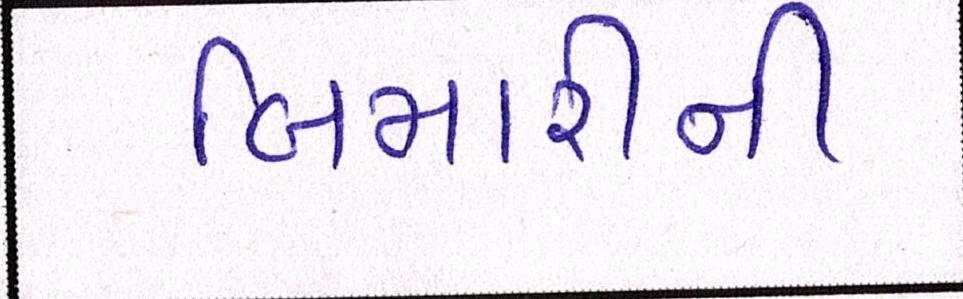 બિમારીની